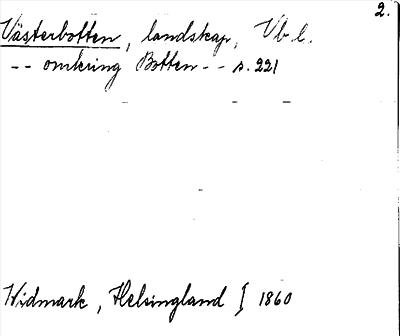 2.
Västerbotten, landskap, Vb. l.
-- omkring Botten -- s. 221
Widmark, Helsingland I 1860